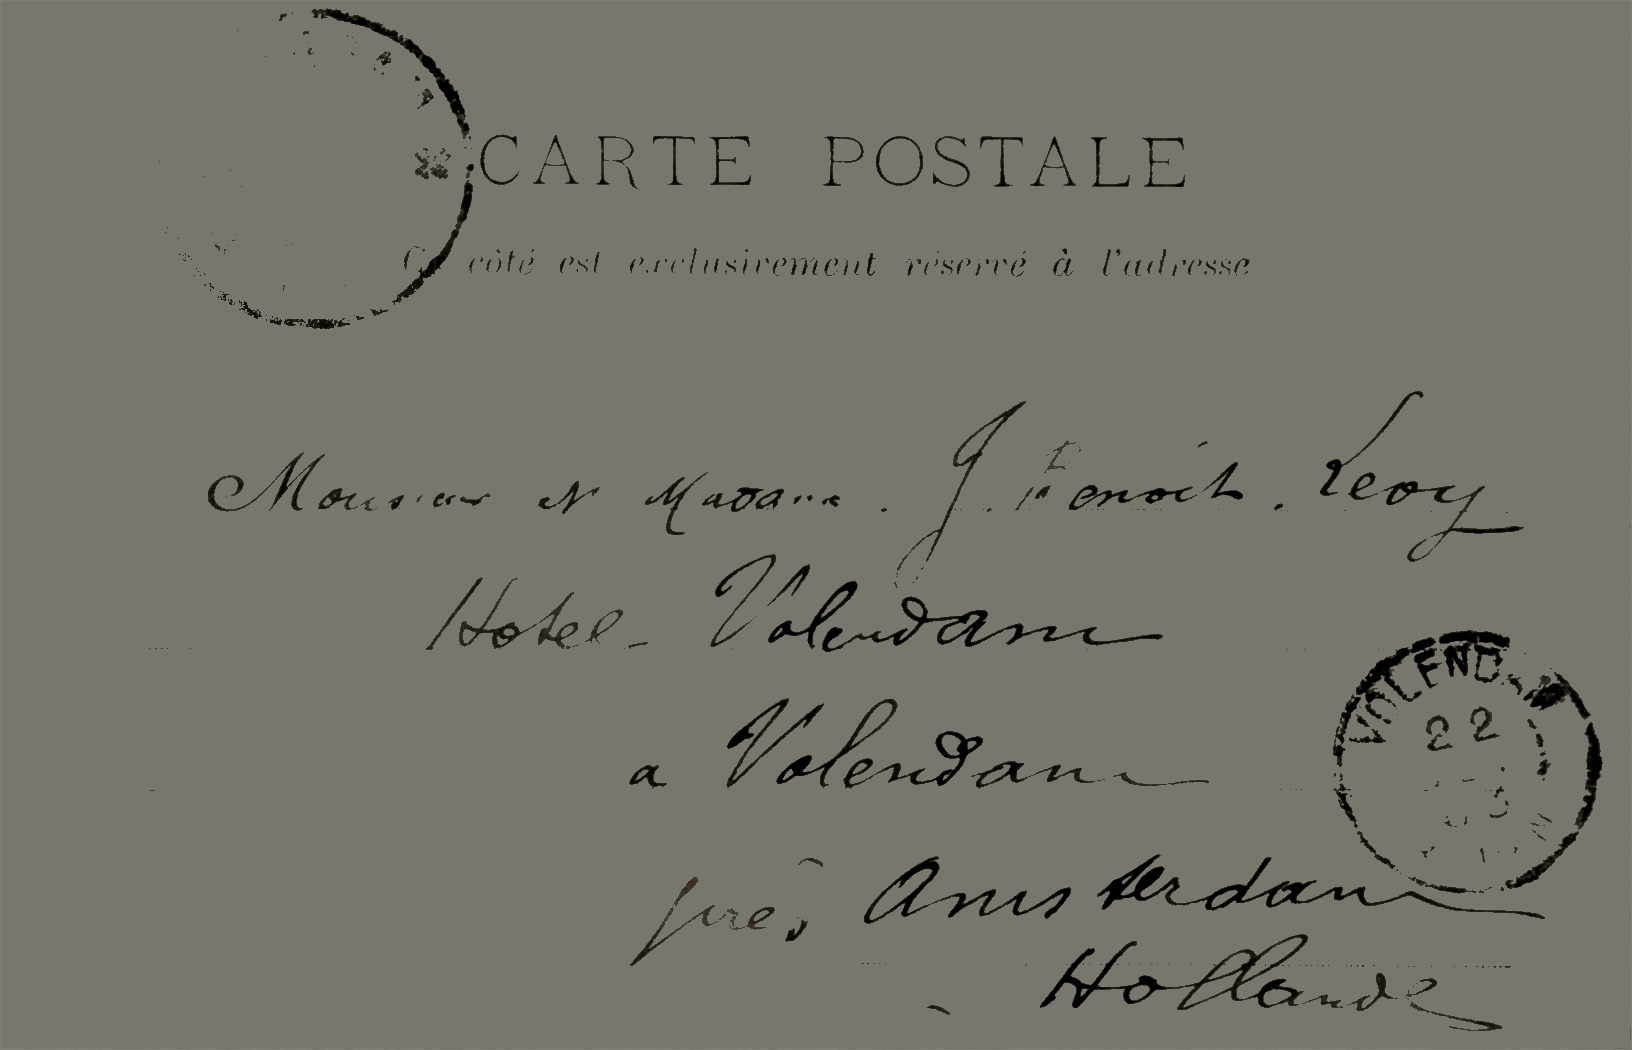 CARTE POSTALE
Ce côté est exclusivement réservé à l'adresse
Monsieur et Madame. J. Benoit. Levy
Hotel Volendam
a Volendam
VOLENDAM
22
près Amsterdam
Hollande